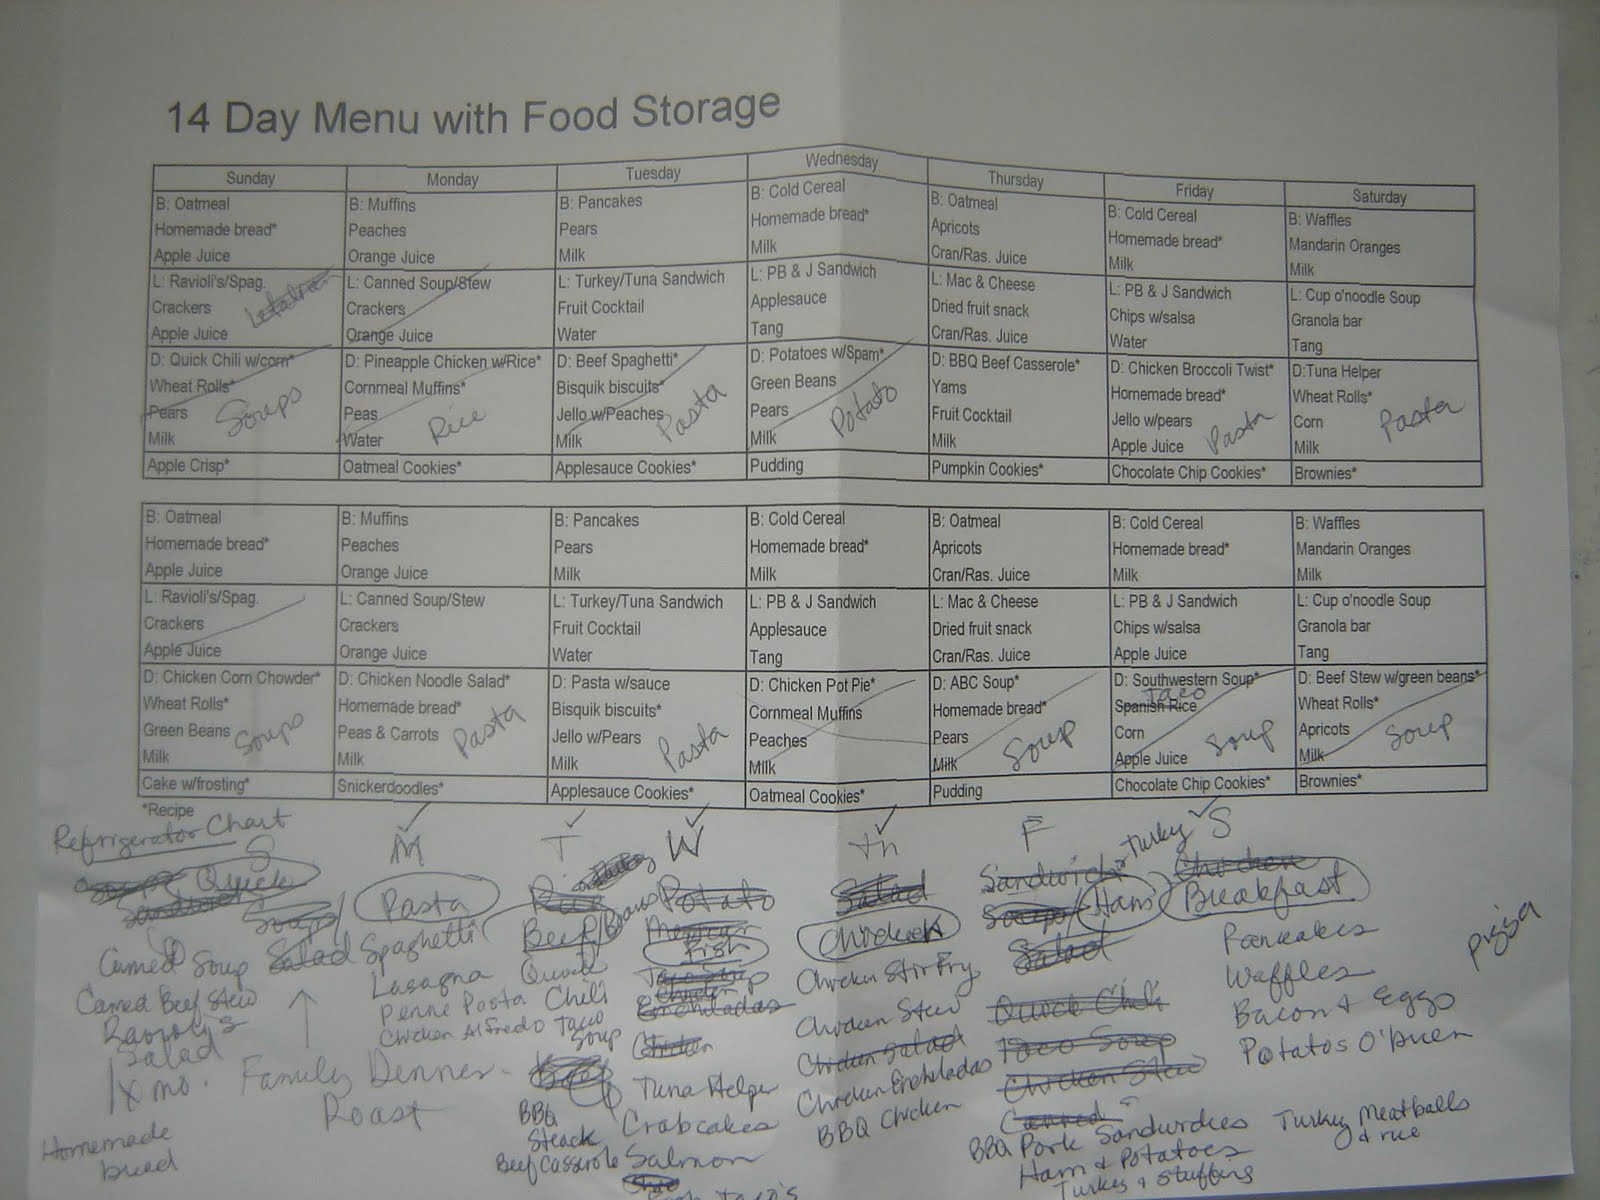 14 Day Menu with Food Storage
Sunday Monday Tuesday Wednesday Thursday Friday Saturday
B: Oatmeal B: Muffins B: Pancakes B: Cold Cereal B: Oatmeal B: Cold Cereal B: Waffles
Homemade bread* Peaches Pears Homemade bread* Apricots Homemade bread* Mandarin Oranges
Apple Juice Orange Juice Milk Milk Cran/Ras. Juice Milk Milk
L: Ravioli's/Spag. L: Canned Soup/Stew L: Turkey/Tuna Sandwich L: PB & J Sandwich L: Mac & Cheese L: PB & J Sandwich L: Cup o'noodle Soup
Crackers Crackers Fruit Cocktail Applesauce Dried fruit snack Chips w/salsa Granola bar
Apple Juice Orange Juice Water Tang Cran/Ras. Juice Water Tang
D: Quick Chili w/corn* D: Pineapple Chicken w/Rice* D: Beef Spaghetti* D: Potatoes w/Spam* D: BBQ Beef Casserole* D: Chicken Broccoli Twist* D:Tuna Helper
Wheat Rolls* Cornmeal Muffins* Bisquik biscuits* Green Beans Yams Homemade bread* Wheat Rolls*
Pears Peas Jello w/Peaches Pears Fruit Cocktail Jello w/pears Corn
Milk Water Milk Milk Milk Apple Juice Milk
Soups Rice Pasta Potato Pasta Pasta
Apple Crisp* Oatmeal Cookies* Applesauce Cookies* Pudding Pumpkin Cookies* Chocolate Chip Cookies* Brownies*
B: Oatmeal B: Muffins B: Pancakes B: Cold Cereal B: Oatmeal B: Cold Cereal B: Waffles
Homemade bread* Peaches Pears Homemade bread* Apricots Homemade bread* Mandarin Oranges
Apple Juice Orange Juice Milk Milk Cran/Ras. Juice Milk Milk
L: Ravioli's/Spag. L: Canned Soup/Stew L: Turkey/Tuna Sandwich L: PB & J Sandwich L: Mac & Cheese L: PB & J Sandwich L: Cup o'noodle Soup
Crackers Crackers Fruit Cocktail Applesauce Dried fruit snack Chips w/salsa Granola bar
Apple Juice Orange Juice Water Tang Cran/Ras. Juice Apple Juice Tang
D: Chicken Corn Chowder* D: Chicken Noodle Salad* D: Pasta w/sauce D: Chicken Pot Pie* D: ABC Soup* D: Southwestern Soup* D: Beef Stew w/green beans*
Taco
Wheat Rolls* Homemade bread* Bisquik biscuits* Cornmeal Muffins Homemade bread* Spanish Rice Wheat Rolls*
Green Beans Peas & Carrots Jello w/Pears Peaches Pears Corn Apricots
Milk Milk Milk Milk Milk Apple Juice Milk
Soups Pasta Pasta Soup Soup Soup
Cake w/frosting* Snickerdoodles* Applesauce Cookies* Oatmeal Cookies* Pudding Chocolate Chip Cookies* Brownies*
*Recipe
Refrigerator Chart
S M T W Th F S
Quick Pasta Rice Potato Salad Sandwich Turkey Chicken
Soups Beef Beans Mexican Chicken Soups Ham Breakfast
Salad Fish Salad
Canned Soup Spaghetti Quick Taco Soup Chicken Stir Fry Pancakes pizza
Canned Beef Stew Lasagna Chili Chicken Enchiladas Chicken Stew Quick Chili Waffles
Salad Penne Pasta Taco Soup Chicken Chicken Salad Taco Soup Bacon & Eggs
1x mo. Family Dinner Roast Chicken Alfredo Beef Tuna Helper Chicken Enchiladas Chicken Stew Potatos O'brien
BBQ Steack Crabcakes BBQ Chicken Canned
Homemade bread Beef Casserole Salmon BBQ Pork Sandwiches Turkey Meatballs & rice
Ham & Potatoes
Turkey & Stuffing